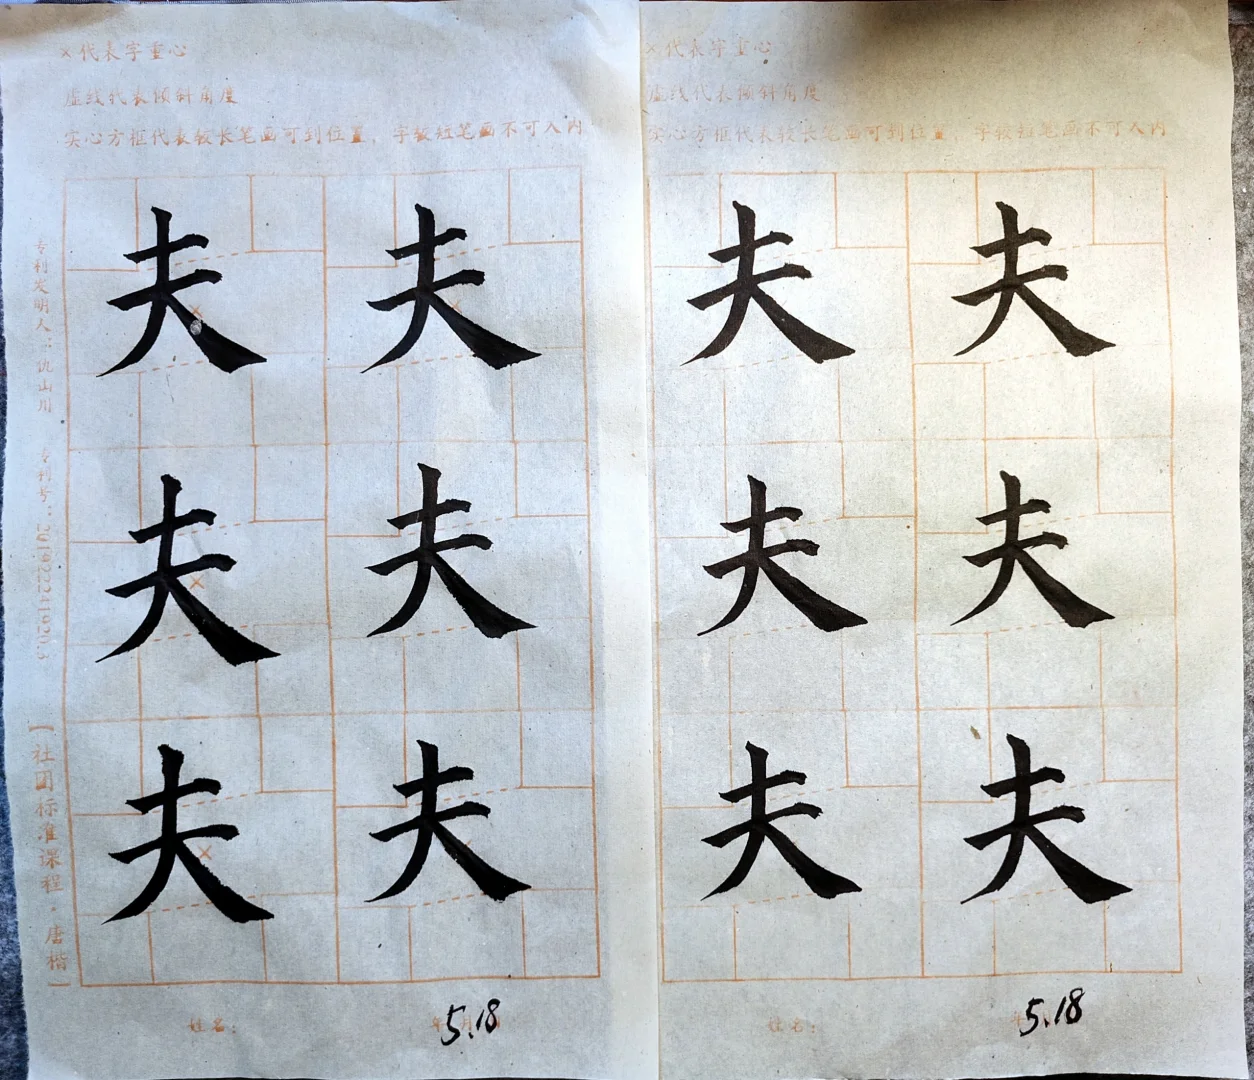 ×代表字重心
虚线代表倾斜角度
实心方框代表较长笔画可到位置，字较短笔画不可入内
×代表字重心
虚线代表倾斜角度
实心方框代表较长笔画可到位置，字较短笔画不可入内
夫 夫 夫 夫
夫 夫 夫 夫
夫 夫 夫 夫
专利发明人：仇山川
专利号：
【社团标准课程·唐楷】
姓名：
年 月
5.18
姓名：
年
5.18